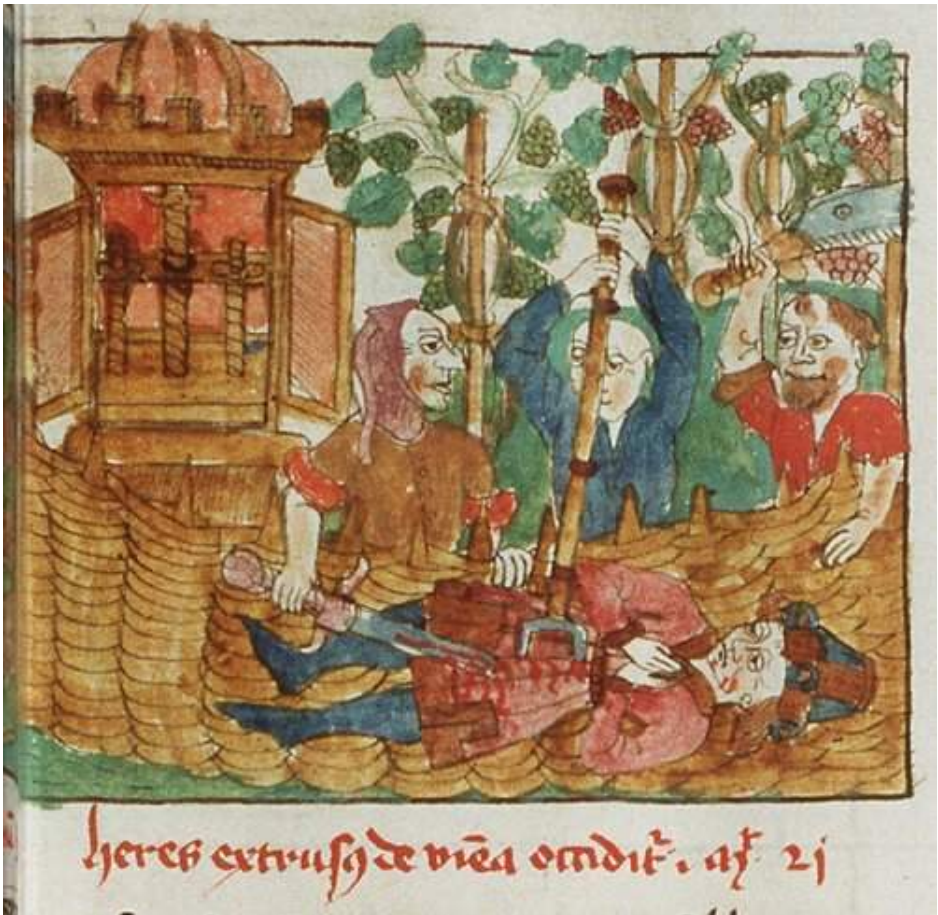 heres extrusꝰ de viēa occidit᷑. mͭ. 21